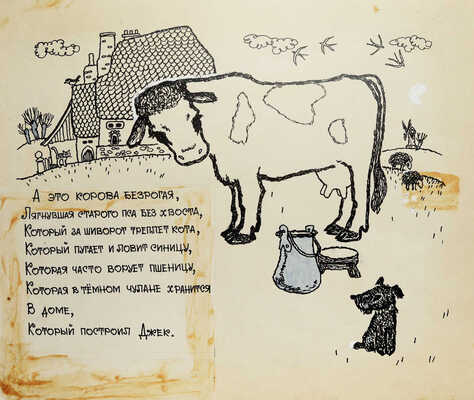 А это корова безрогая,
Лягнувшая старого пса без хвоста,
Который за шиворот треплет кота,
Который пугает и ловит синицу,
Которая часто ворует пшеницу,
Которая в тёмном чулане хранится
В доме,
Который построил Джек.